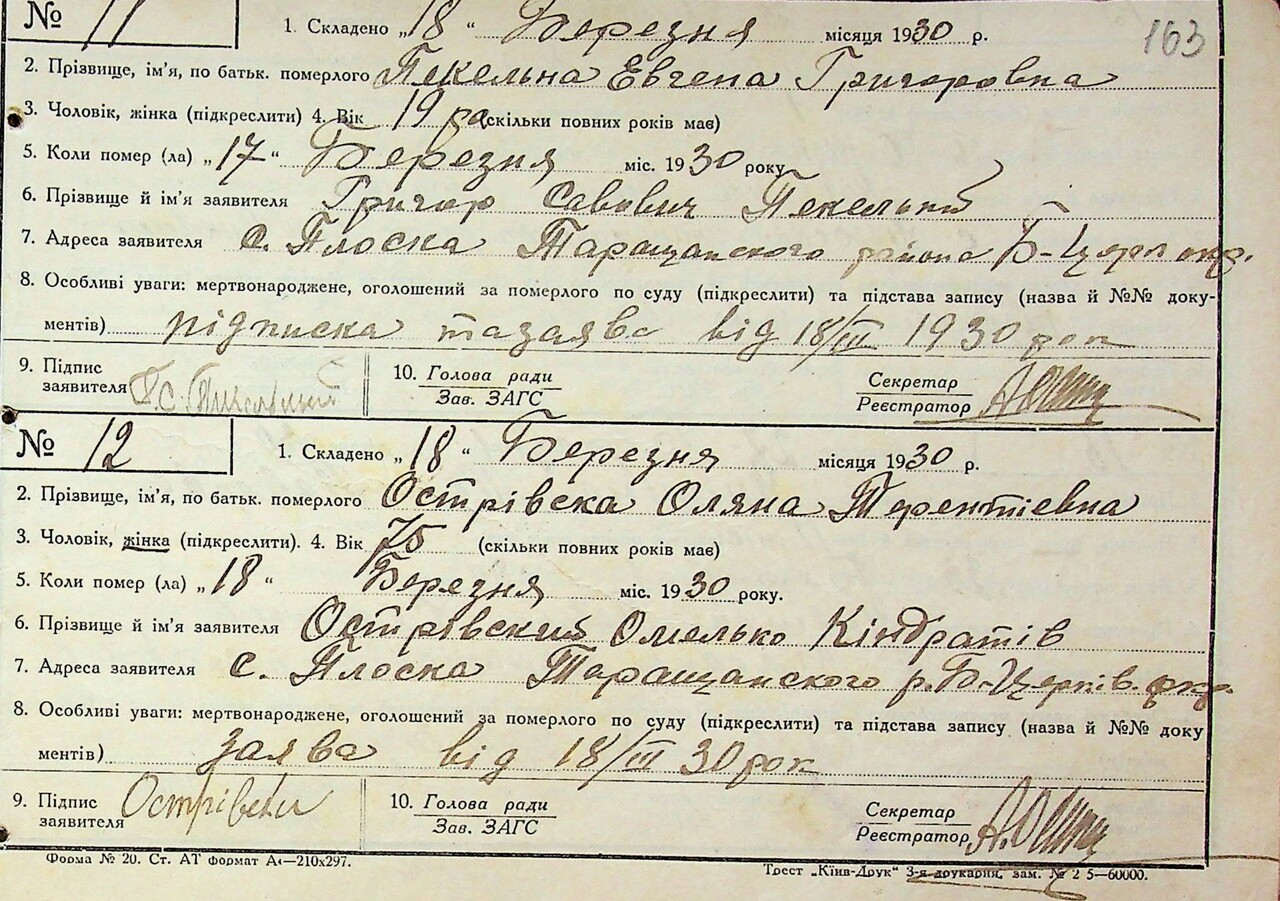 № 11 1. Складено „18" Березня місяця 1930 р. 163
2. Прізвище, ім'я, по батьк. померлого Пекельна Евгена Григоровна
3. Чоловік, жінка (підкреслити) 4. Вік 19 ро (скільки повних років має)
5. Коли помер (ла) „17" Березня міс. 1930 року
6. Прізвище й ім'я заявителя Григор Савович Пекельний
7. Адреса заявителя с. Плоска Таращанского района Б-Церк окр.
8. Особливі уваги: мертвонароджене, оголошений за померлого по суду (підкреслити) та підстава запису (назва й №№ доку-
ментів) підписка та заява від 18/III 1930 рок
9. Підпис 10. Голова ради Секретар
заявителя Г.С. Пикельний Зав. ЗАГС Реєстратор
№ 12 1. Складено „18" Березня місяця 1930 р.
2. Прізвище, ім'я, по батьк. померлого Острівска Оляна Терентіевна
3. Чоловік, жінка (підкреслити). 4. Вік 75 (скільки повних років має)
5. Коли помер (ла) „18" Березня міс. 1930 року.
6. Прізвище й ім'я заявителя Острівский Омелько Кіндратів
7. Адреса заявителя с. Плоска Таращанского р. Б-Церків. окр.
8. Особливі уваги: мертвонароджене, оголошений за померлого по суду (підкреслити) та підстава запису (назва й №№ доку
ментів) заява від 18/III 30 рок
9. Підпис 10. Голова ради Секретар
заявителя Зав. ЗАГС Реєстратор
Форма № 20. Ст. АТ формат А4—210х297. Трест „Київ-Друк" 3-я друкарня, зам. № 2 5—60000.